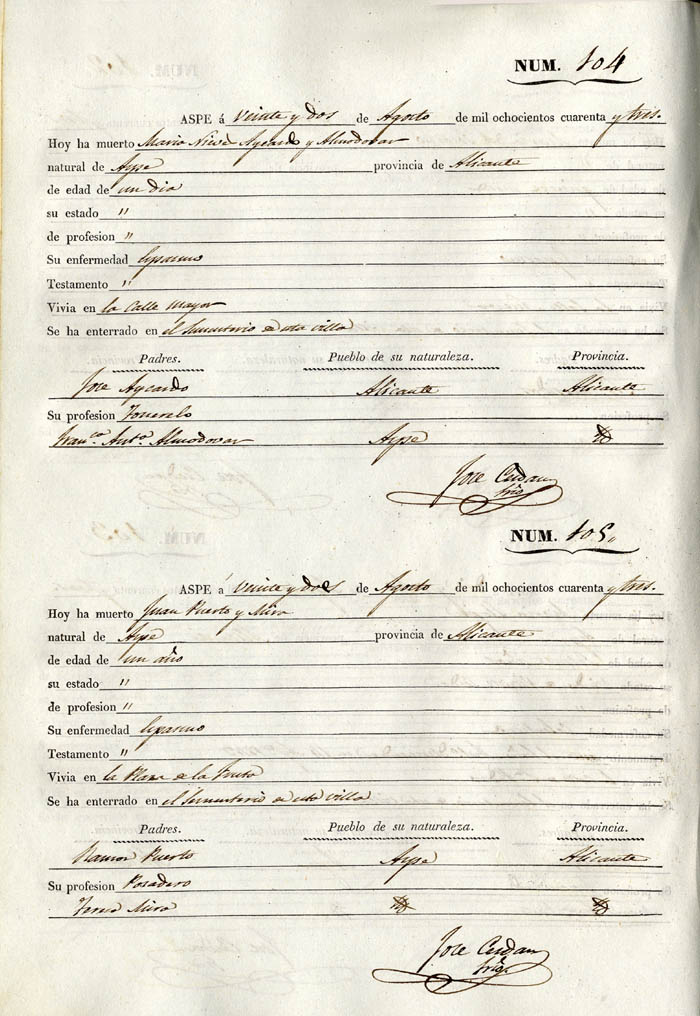 NUM. 104
ASPE á veinte y dos de Agosto de mil ochocientos cuarenta y tres.
Hoy ha muerto Maria Nieve Aycardo y Almodovar
natural de Aspe provincia de Alicante
de edad de un dia
su estado "
de profesion "
Su enfermedad Espasmo
Testamento "
Vivia en la Calle Mayor
Se ha enterrado en el Sementerio de esta villa
Padres. Pueblo de su naturaleza. Provincia.
Jose Aycardo Alicante Alicante
Su profesion
Franca. Anta. Almodovar Aspe Yd
Jose Cerdan
Srio
NUM. 105.
ASPE á veinte y dos de Agosto de mil ochocientos cuarenta y tres.
Hoy ha muerto Juan Puerto y Mira
natural de Aspe provincia de Alicante
de edad de un año
su estado "
de profesion "
Su enfermedad Espasmo
Testamento "
Vivia en la Plaza de la
Se ha enterrado en el Sementerio de esta villa
Padres. Pueblo de su naturaleza. Provincia.
Ramon Puerto Aspe Alicante
Su profesion Posadero
Teresa Mira Yd Yd
Jose Cerdan
Srio